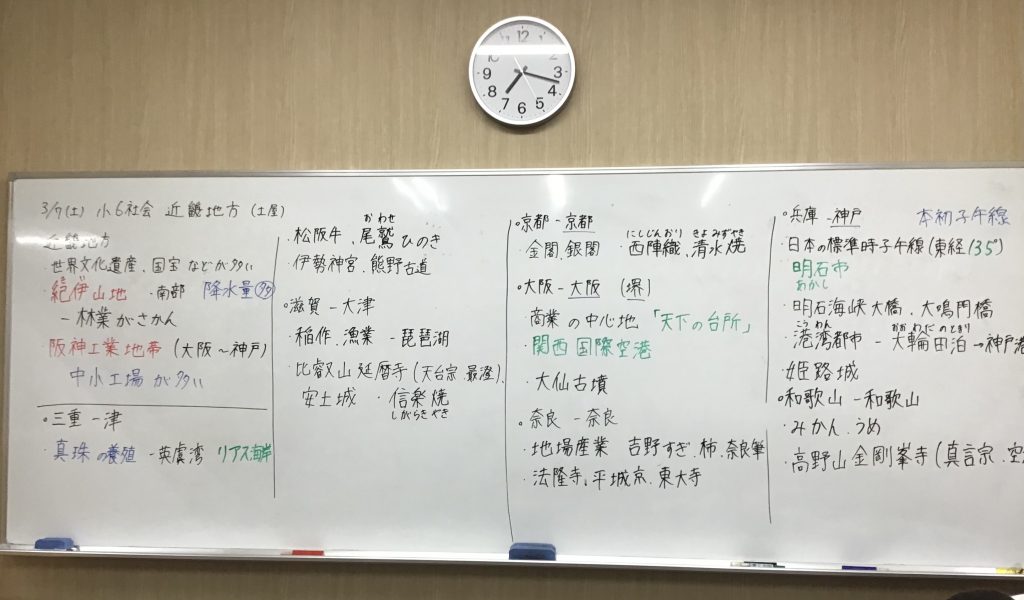 3/7(土) 小6社会 近畿地方 (土屋)
近畿地方
・世界文化遺産、国宝などが多い
・紀伊山地 ・南部 降水量多
－林業がさかん
・阪神工業地帯 (大阪～神戸)
中小工場が多い
○三重－津
・真珠の養殖 －英虞湾 リアス海岸
おわせ
・松阪牛、尾鷲ひのき
・伊勢神宮、熊野古道
○滋賀－大津
・稲作、漁業 －琵琶湖
・比叡山延暦寺(天台宗、最澄)、
安土城 ・信楽焼
しがらきやき
○京都－京都
にしじんおり きよみずやき
・金閣、銀閣 ・西陣織、清水焼
○大阪－大阪 (堺)
・商業の中心地「天下の台所」
・関西国際空港
・大仙古墳
○奈良－奈良
・地場産業 吉野すぎ、柿、奈良筆
・法隆寺、平城京、東大寺
○兵庫－神戸 本初子午線
・日本の標準時子午線(東経135°)
明石市
あかし
・明石海峡大橋、大鳴門橋
こうわん おおわだのとまり
・港湾都市 －大輪田泊→神戸港
・姫路城
○和歌山－和歌山
・みかん、うめ
・高野山金剛峯寺(真言宗、空
12
2
3
4
5
6
7
8
9
10